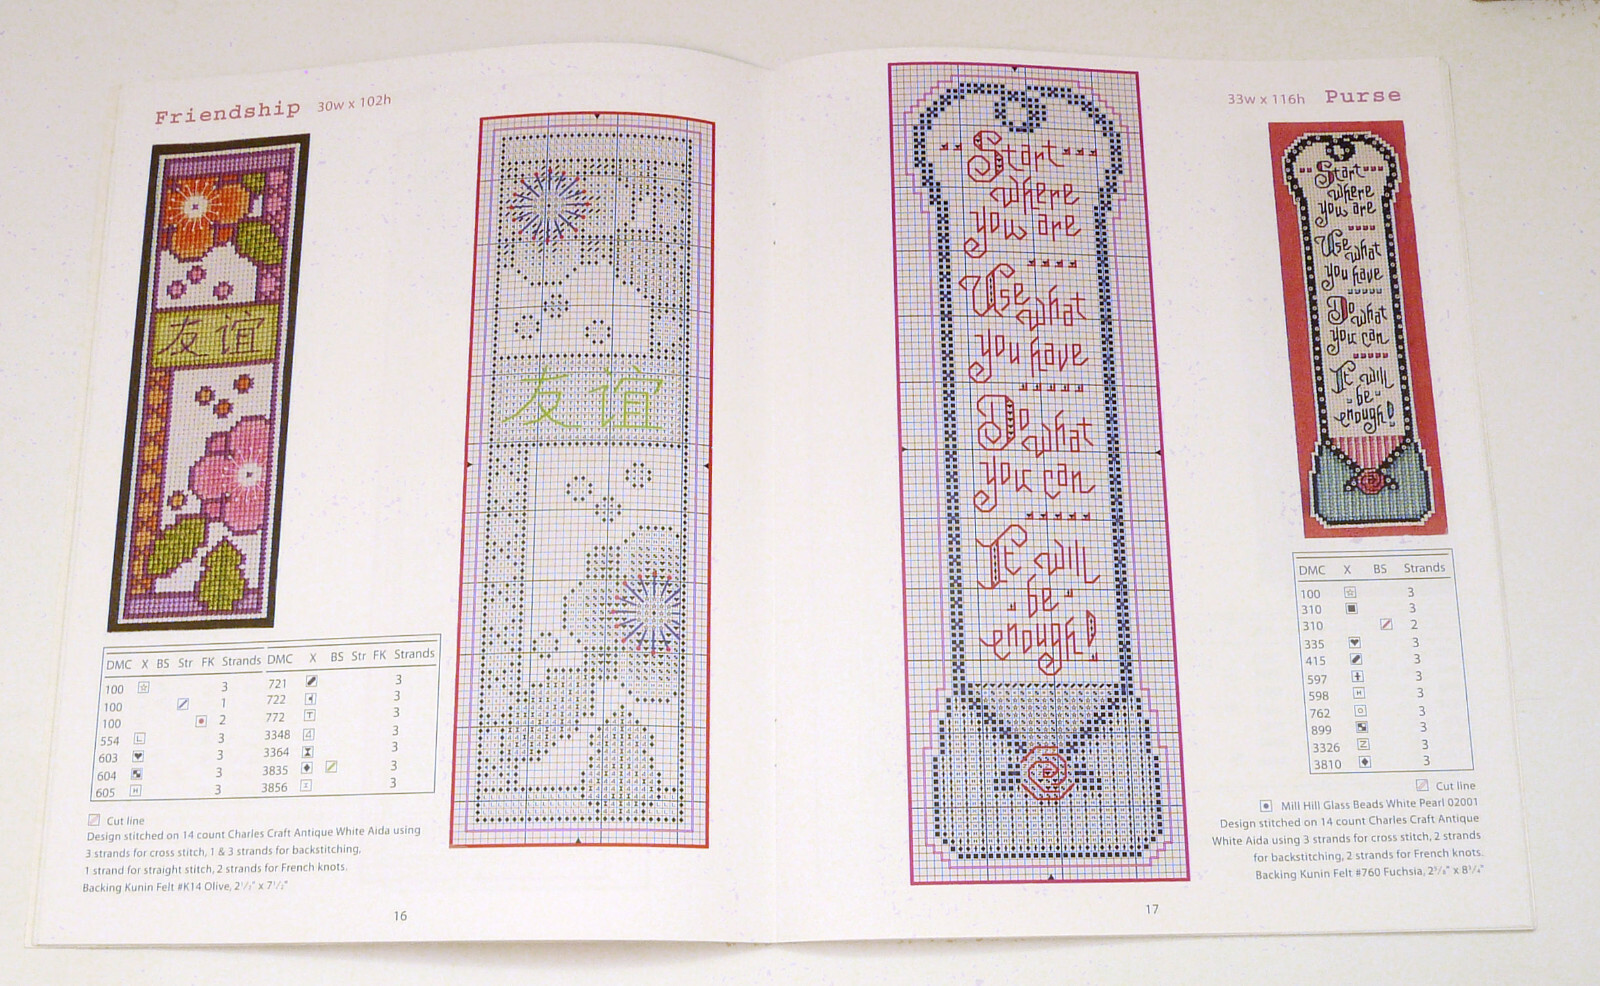 Friendship 30w x 102h
友谊
DMC X BS Str FK Strands DMC X BS Str FK Strands
100 3 721 3
100 1 722 3
100 2 772 3
554 3 3348 3
603 3 3364 3
604 3 3835 3
605 3 3856 3
Cut line
Design stitched on 14 count Charles Craft Antique White Aida using
3 strands for cross stitch, 1 & 3 strands for backstitching,
1 strand for straight stitch, 2 strands for French knots.
Backing Kunin Felt #K14 Olive, 2½" x 7½"
16
友谊
Start
where
you are
Use
what
you have
Do
what
you can
It will
be
enough!
33w x 116h Purse
Start
where
you are
Use what
you have
Do what
you can
It will
be
enough!
DMC X BS Strands
100 3
310 3
310 2
335 3
415 3
597 3
598 3
762 3
899 3
3326 3
3810 3
Cut line
Mill Hill Glass Beads White Pearl 02001
Design stitched on 14 count Charles Craft Antique
White Aida using 3 strands for cross stitch, 2 strands
for backstitching, 2 strands for French knots.
Backing Kunin Felt #760 Fuchsia,
17